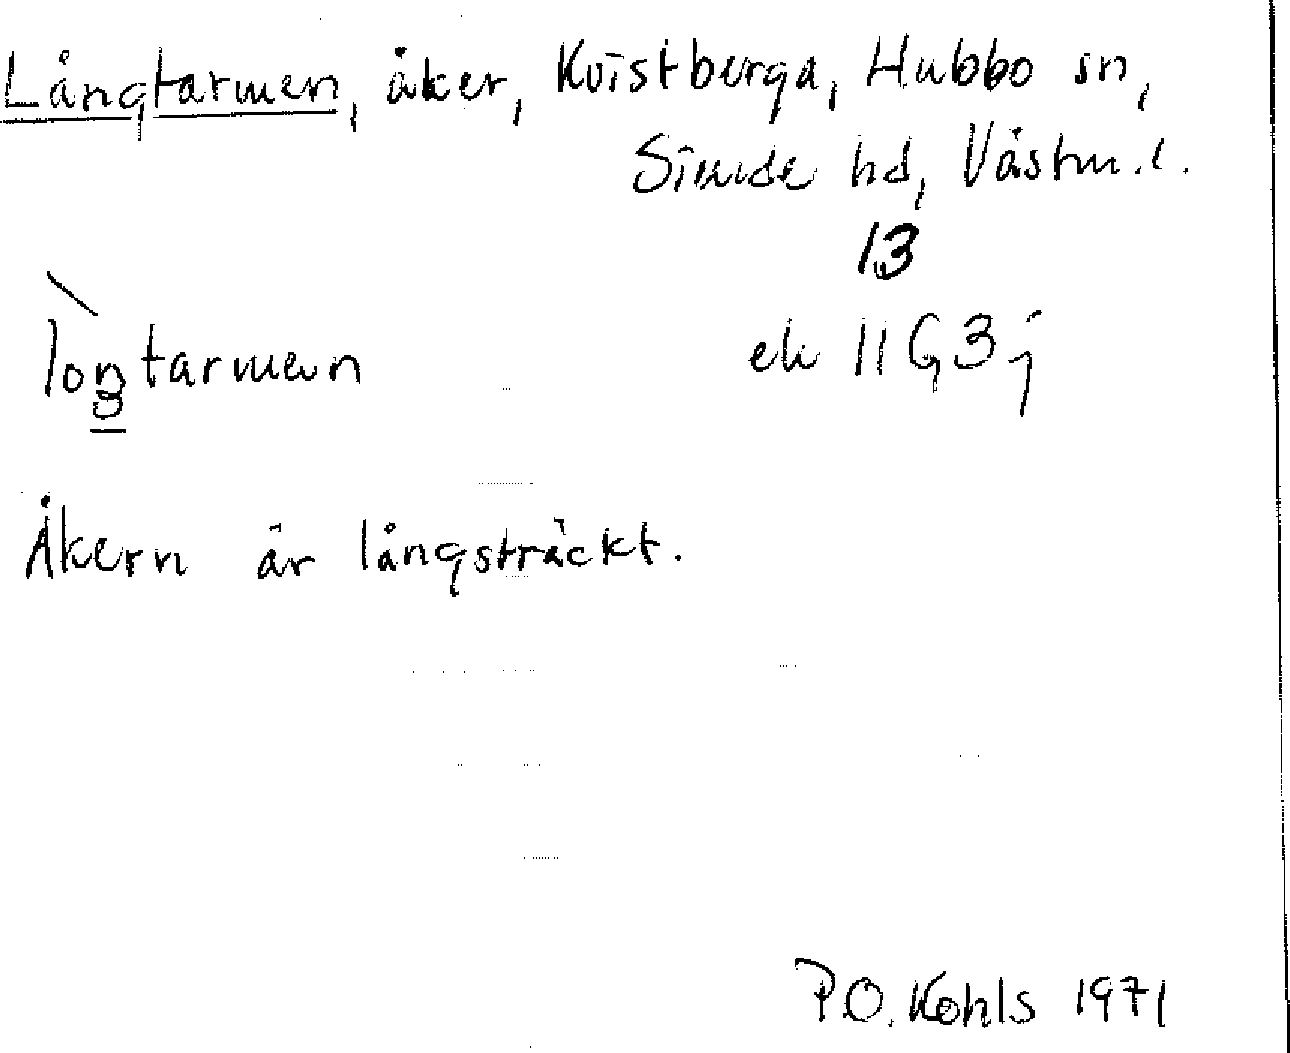 Långtarmen, åker, Kvistberga, Hubbo sn,
Siende hd, Västm. l.
13
lon͟g tarmen
ek 11 G 3 j
Åkern är långsträckt.
P.O. Kohls 1971